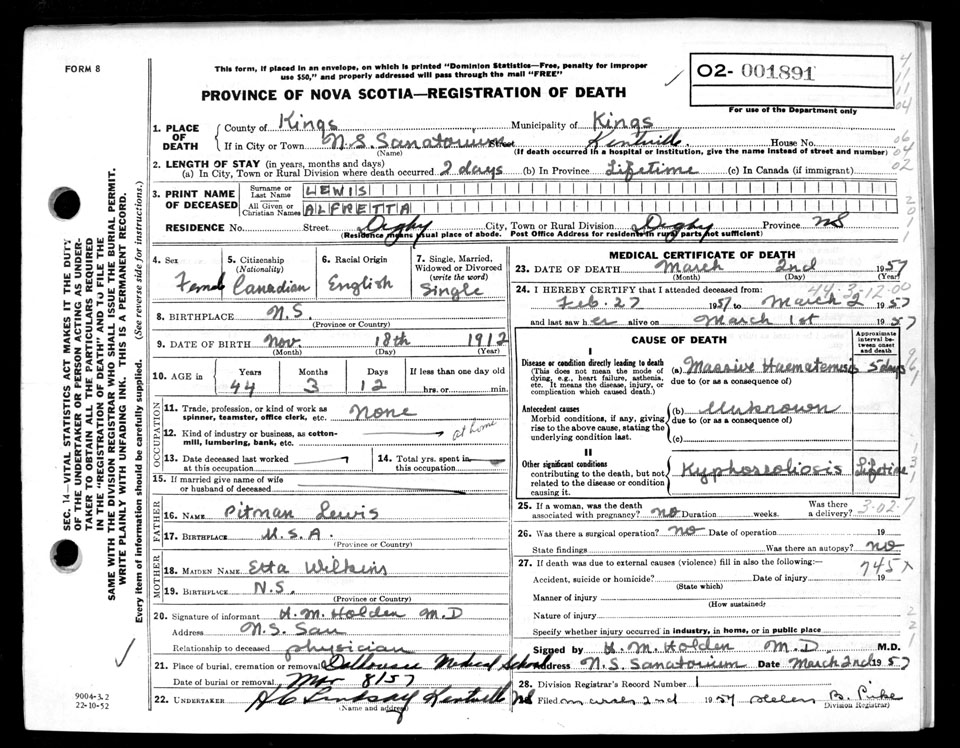 FORM 8
This form, if placed in an envelope, on which is printed "Dominion Statistics—Free, penalty for improper
use $50," and properly addressed will pass through the mail "FREE"
02- 001891
PROVINCE OF NOVA SCOTIA—REGISTRATION OF DEATH
For use of the Department only
1. PLACE OF DEATH County of Kings Municipality of Kings
If in City or Town N.S. Sanatorium Kentville House No.
(Name) (If death occurred in a hospital or institution, give the name instead of street and number)
2. LENGTH OF STAY (in years, months and days)
(a) In City, Town or Rural Division where death occurred 2 days (b) In Province Lifetime (c) In Canada (if immigrant)
3. PRINT NAME OF DECEASED
Surname or Last Name LEWIS
All Given or Christian Names ALFRETTA
RESIDENCE No. Street Digby City, Town or Rural Division Digby Province NS
(Residence means usual place of abode. Post Office Address for residents in rural parts not sufficient)
SEC. 14—VITAL STATISTICS ACT MAKES IT THE DUTY
OF THE UNDERTAKER OR PERSON ACTING AS UNDER-
TAKER TO OBTAIN ALL THE PARTICULARS REQUIRED
IN THE "REGISTRATION OF DEATH" AND TO FILE THE
SAME WITH THE DIVISION REGISTRAR WHO SHALL ISSUE THE BURIAL PERMIT.
WRITE PLAINLY WITH UNFADING INK. THIS IS A PERMANENT RECORD.
Every item of information should be carefully supplied. (See reverse side for instructions.)
4. Sex 5. Citizenship (Nationality) 6. Racial Origin 7. Single, Married, Widowed or Divorced (write the word)
Female Canadian English Single
8. BIRTHPLACE N.S.
(Province or Country)
9. DATE OF BIRTH Nov. 18th 1912
(Month) (Day) (Year)
10. AGE in Years Months Days If less than one day old
44 3 12 hrs. or min.
OCCUPATION
11. Trade, profession, or kind of work as spinner, teamster, office clerk, etc. None
12. Kind of industry or business, as cotton-mill, lumbering, bank, etc. at home
13. Date deceased last worked at this occupation
14. Total yrs. spent in this occupation
15. If married give name of wife or husband of deceased
FATHER
16. NAME Pitman Lewis
17. BIRTHPLACE U.S.A.
(Province or Country)
MOTHER
18. MAIDEN NAME Etta Wilkins
19. BIRTHPLACE N.S.
(Province or Country)
20. Signature of informant H. M. Holden M.D
Address N.S. San
Relationship to deceased physician
21. Place of burial, cremation or removal Dalhousie Medical School
Date of burial or removal Mar 8/57
22. UNDERTAKER Lindsay Kentville NS
(Name and address)
9004-3.2
22-10-52
MEDICAL CERTIFICATE OF DEATH
23. DATE OF DEATH March 2nd 1957
(Month) (Day) (Year)
24. I HEREBY CERTIFY that I attended deceased from: 44-3-12-00
Feb. 27 1957 to March 2 1957
and last saw her alive on March 1st 1957
CAUSE OF DEATH
Approximate interval between onset and death
I
Disease or condition directly leading to death
(This does not mean the mode of dying, e.g., heart failure, asthenia, etc. It means the disease, injury, or complication which caused death.)
(a) Massive Haematemesis 5 days
due to (or as a consequence of)
Antecedent causes
Morbid conditions, if any, giving rise to the above cause, stating the underlying condition last.
(b) Unknown
due to (or as a consequence of)
(c)
II
Other significant conditions
contributing to the death, but not related to the disease or condition causing it.
Kyphoscoliosis Lifetime
25. If a woman, was the death associated with pregnancy? no Duration weeks. Was there a delivery? 3-02-7
26. Was there a surgical operation? no Date of operation 19
State findings Was there an autopsy? no
27. If death was due to external causes (violence) fill in also the following:— 745x
Accident, suicide or homicide? Date of injury 19
(State which)
Manner of injury
(How sustained)
Nature of injury
Specify whether injury occurred in industry, in home, or in public place
Signed by H. M. Holden M.D. M.D.
Address N.S. Sanatorium Date March 2nd 1957
28. Division Registrar's Record Number 1
Filed March 2nd 1957 Helen B. Pike
(Division Registrar)